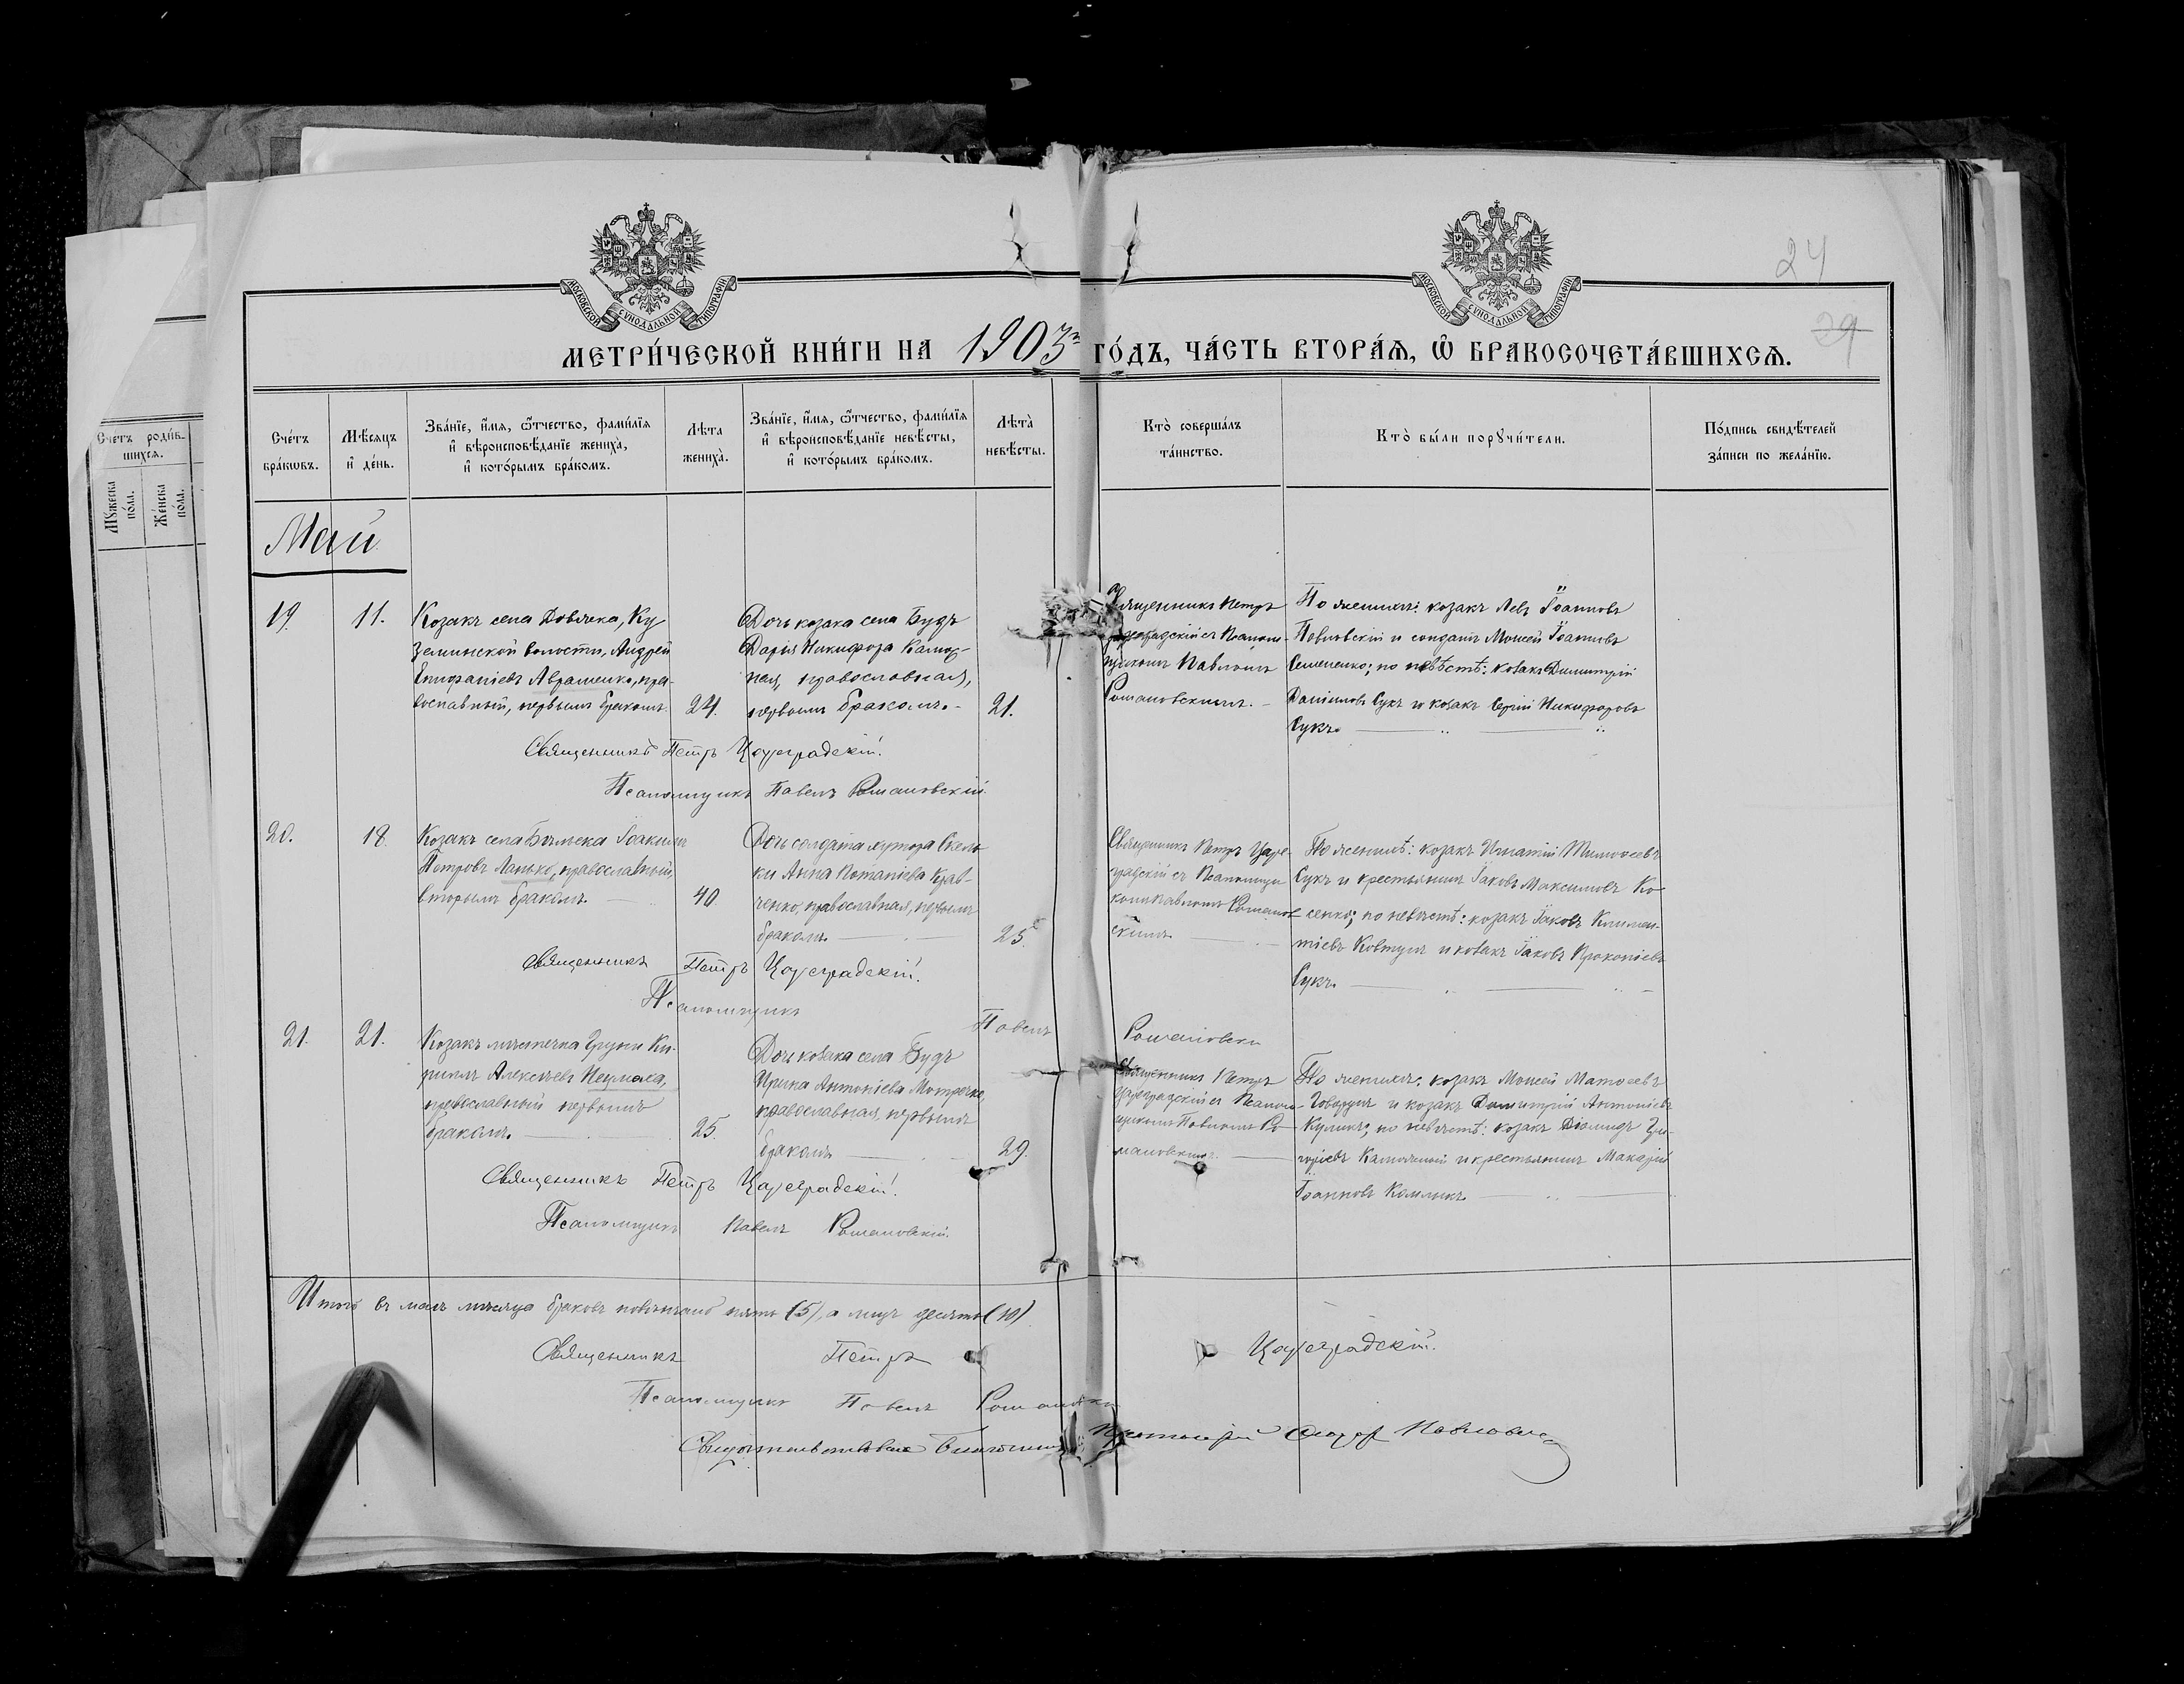 24
29
МОСКОВСКОЙ СѴНОДАЛЬНОЙ ТИПОГРАФІИ
МОСКОВСКОЙ СѴНОДАЛЬНОЙ ТИПОГРАФІИ
МЕТРИ́ЧЕСКОЙ КНИ́ГИ НА 1903й ГО́ДЪ, ЧА́СТЬ ВТОРА́Я, Ѽ БРАКОСОЧЕТА́ВШИХСѦ.
Сче́тъ роди́в-
шихсѧ.
Мꙋ́жеска по́ла.
Же́нска по́ла.
Сче́тъ
бра́кωвъ.
Мѣ́сѧцъ
и҆ де́нь.
Зва́нїе, и҆́мѧ, ѻ҆́тчество, фами́лїѧ
и҆ вѣроисповѣ́данїе жениха̀,
и҆ кото́рымъ бра́комъ.
Лѣ́та
жениха̀.
Зва́нїе, и҆́мѧ, ѻ҆́тчество, фами́лїѧ
и҆ вѣроисповѣ́данїе невѣ́сты,
и҆ кото́рымъ бра́комъ.
Лѣ́та
невѣ́сты.
Кто̀ соверша́лъ
та́инство.
Кто̀ бы́ли порꙋчи́тели.
По́дпись свидѣ́телей
за́писи по жела́нїю.
Май
19.
11.
Козакъ села Довляка, Ку
земинской волости, Андрей
Епифаніевъ Авраменко, пра-
вославный, первымъ бракомъ.
24.
Дочь козака села Будъ
Дарія Никифорова
православная,
первымъ бракомъ.-
21.
Священникъ Петръ
Цареградскій съ Псаломщи-
комъ Павломъ
Романовскимъ.-
По женихѣ: козакъ Левъ Іоанновъ
Павловскій и солдатъ Моисей Іоанновъ
Семененко; по невѣстѣ: козакъ Димитрій
Даніиловъ Сукъ и козакъ Сергій Никифоровъ
Сукъ.
Священникъ Петръ Цареградскій.
Псаломщикъ Павелъ Романовскій.
20.
18.
Козакъ села Бѣльска Іоакимъ
Петровъ Ланько, православный,
вторымъ бракомъ.
40.
Дочь солдата хутора Скель-
ки Анна Потапіева Крав-
ченко, православная, первымъ
бракомъ.
25.
Священникъ Петръ Царе-
градскій съ Псаломщи
комъ Павломъ Романов
скимъ.
По женихѣ: козакъ Игнатій Тимоѳеевъ
Сукъ и крестьянинъ Іаковъ Максимовъ Ко-
сенко; по невѣстѣ: козакъ Іаковъ Климен-
тіевъ Ковтунъ и козакъ Іаковъ Прокопіевъ
Сукъ.
Священникъ Петръ Цареградскій.
Псаломщикъ Павелъ Романовскій
21.
21.
Козакъ мѣстечка Груни Ки-
риллъ Алексѣевъ
православный первымъ
бракомъ.
25.
Дочь козака села Будъ
Ирина Антоніева
православная, первымъ
бракомъ
29.
Священникъ Петръ
Цареградскій съ Псалом-
щикомъ Павломъ Ро-
мановскимъ.
По женихѣ: козакъ Моисей Матѳеевъ
Говорунъ и козакъ Димитрій Антоніевъ
Куликъ; по невѣстѣ: козакъ Діомидъ Гри-
горіевъ и крестьянинъ Макарій
Іоанновъ
Священникъ Петръ Цареградскій.
Псаломщикъ Павелъ Романовскій.
Итого въ маѣ мѣсяцѣ браковъ повѣнчано пять (5), а лицъ десять (10)
Священникъ Петръ Цареградскій.
Псаломщикъ Павелъ Романовскій
Свидѣтельствовалъ Благочинный Протоіерей